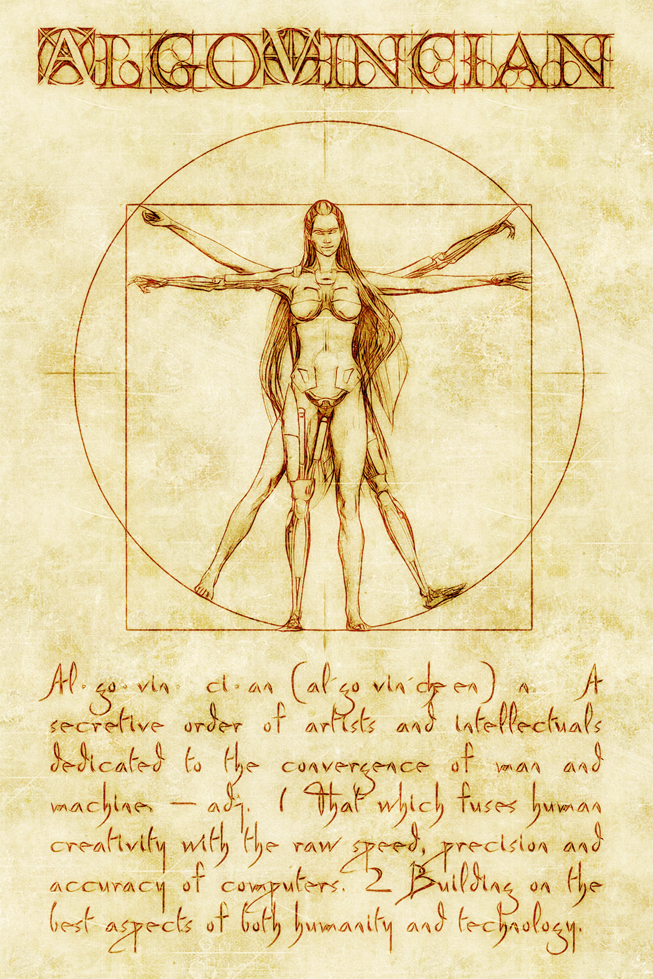 ALGOVINCIAN
Al·go·vin· ci·an (al´go vin´che en) n. A
secretive order of artists and intellectuals
dedicated to the convergence of man and
machine. — adj. 1 That which fuses human
creativity with the raw speed, precision and
accuracy of computers. 2 Building on the
best aspects of both humanity and technology.